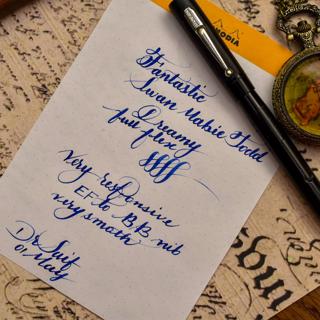 RHODIA
Fantastic
Swan Mabie Todd
Dreamy
full flex
ffff
Very responsive
EF to BB nib
very smoth
Dr Saif
01 May